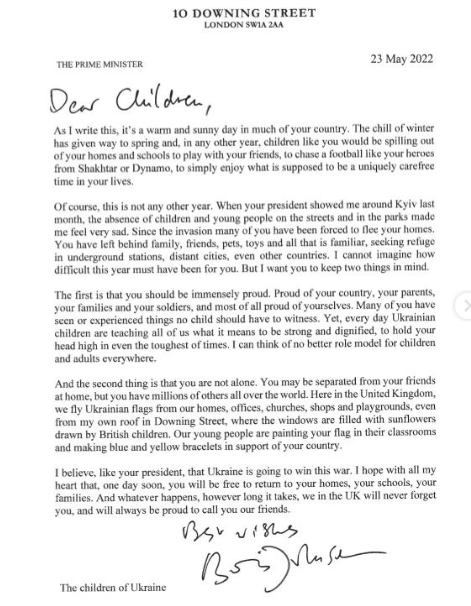 10 DOWNING STREET
LONDON SW1A 2AA
THE PRIME MINISTER
23 May 2022
Dear Children,
As I write this, it's a warm and sunny day in much of your country. The chill of winter
has given way to spring and, in any other year, children like you would be spilling out
of your homes and schools to play with your friends, to chase a football like your heroes
from Shakhtar or Dynamo, to simply enjoy what is supposed to be a uniquely carefree
time in your lives.
Of course, this is not any other year. When your president showed me around Kyiv last
month, the absence of children and young people on the streets and in the parks made
me feel very sad. Since the invasion many of you have been forced to flee your homes.
You have left behind family, friends, pets, toys and all that is familiar, seeking refuge
in underground stations, distant cities, even other countries. I cannot imagine how
difficult this year must have been for you. But I want you to keep two things in mind.
The first is that you should be immensely proud. Proud of your country, your parents,
your families and your soldiers, and most of all proud of yourselves. Many of you have
seen or experienced things no child should have to witness. Yet, every day Ukrainian
children are teaching all of us what it means to be strong and dignified, to hold your
head high in even the toughest of times. I can think of no better role model for children
and adults everywhere.
And the second thing is that you are not alone. You may be separated from your friends
at home, but you have millions of others all over the world. Here in the United Kingdom,
we fly Ukrainian flags from our homes, offices, churches, shops and playgrounds, even
from my own roof in Downing Street, where the windows are filled with sunflowers
drawn by British children. Our young people are painting your flag in their classrooms
and making blue and yellow bracelets in support of your country.
I believe, like your president, that Ukraine is going to win this war. I hope with all my
heart that, one day soon, you will be free to return to your homes, your schools, your
families. And whatever happens, however long it takes, we in the UK will never forget
you, and will always be proud to call you our friends.
Best wishes
Boris Johnson
The children of Ukraine